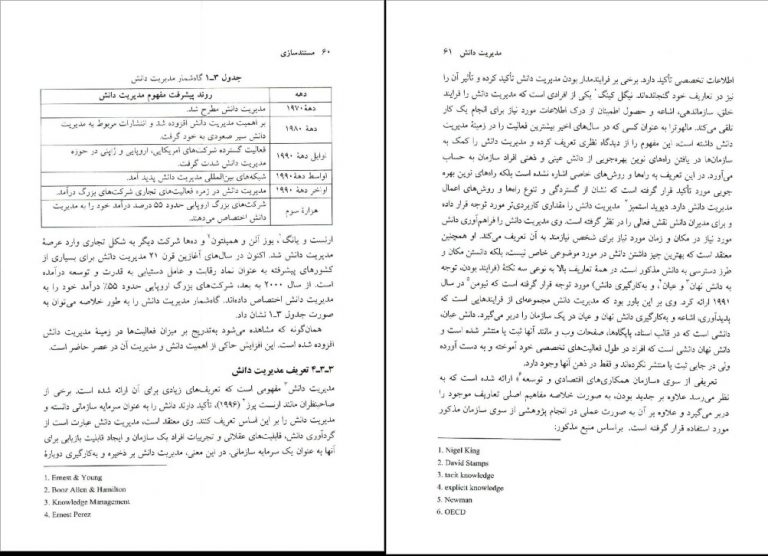 ۶۰ مستندسازی
جدول ۳ـ۱ گاه‌شمار مدیریت دانش
دهه روند پیشرفت مفهوم مدیریت دانش
دههٔ ۱۹۷۰ مدیریت دانش مطرح شد.
دههٔ ۱۹۸۰ بر اهمیت مدیریت دانش افزوده شد و انتشارات مربوط به مدیریت
دانش سیر صعودی به خود گرفت.
اوایل دههٔ ۱۹۹۰ فعالیت گسترده شرکت‌های آمریکایی، اروپایی و ژاپنی در حوزه
مدیریت دانش شدت گرفت.
اواسط دههٔ ۱۹۹۰ شبکه‌های بین‌المللی مدیریت دانش پدید آمد.
اواخر دههٔ ۱۹۹۰ مدیریت دانش در زمره فعالیت‌های تجاری شرکت‌های بزرگ درآمد.
هزارهٔ سوم شرکت‌های بزرگ اروپایی حدود ۵۵ درصد درآمد خود را به مدیریت
دانش اختصاص می‌دهند.
ارنست و یانگ۱، بوز آلن و همیلتون۲ و ده‌ها شرکت دیگر به شکل تجاری وارد عرصهٔ
مدیریت دانش شد. اکنون در سال‌های آغازین قرن ۲۱ مدیریت دانش برای بسیاری از
کشورهای پیشرفته به عنوان نماد رقابت و عامل دستیابی به قدرت و توسعه درآمده
است. از سال ۲۰۰۰ به بعد، شرکت‌های بزرگ اروپایی حدود ۵۵٪ درآمد خود را به
مدیریت دانش اختصاص داده‌اند. گاه‌شمار مدیریت دانش را به طور خلاصه می‌توان به
صورت جدول ۳ـ۱ نشان داد.
همان‌گونه که مشاهده می‌شود به‌تدریج بر میزان فعالیت‌ها در زمینهٔ مدیریت دانش
افزوده شده است. این افزایش حاکی از اهمیت دانش و مدیریت آن در عصر حاضر است.
۳ـ۳ـ۴ تعریف مدیریت دانش
مدیریت دانش۳ مفهومی است که تعریف‌های زیادی برای آن ارائه شده است. برخی از
صاحبنظران مانند ارنست پرز۴ (۱۹۹۶)، تأکید دارند دانش را به عنوان سرمایه سازمانی دانسته و
مدیریت دانش را بر این اساس تعریف کنند. وی معتقد است، مدیریت دانش عبارت است از
گردآوری دانش، قابلیت‌های عقلانی و تجربیات افراد یک سازمان و ایجاد قابلیت بازیابی برای
آنها به عنوان یک سرمایه سازمانی. در این معنی، مدیریت دانش بر ذخیره و به‌کارگیری دوبارهٔ
1. Ernest & Young
2. Booz Allen & Hamilton
3. Knowledge Management
4. Ernest Perez
مدیریت دانش ۶۱
اطلاعات تخصصی تأکید دارد. برخی بر فرایندمدار بودن مدیریت دانش تأکید کرده و تأثیر آن را
نیز در تعاریف خود گنجانده‌اند. نیگل کینگ۱ یکی از افرادی است که مدیریت دانش را فرایند
خلق، سازماندهی، اشاعه و حصول اطمینان از درک اطلاعات مورد نیاز برای انجام یک کار
تلقی می‌کند. مالهوترا به عنوان کسی که در سال‌های اخیر بیشترین فعالیت را در زمینهٔ مدیریت
دانش داشته است، این مفهوم را از دیدگاه نظری تعریف کرده و مدیریت دانش را کمک به
سازمان‌ها در یافتن راه‌های نوین بهره‌جویی از دانش عینی و ذهنی افراد سازمان به حساب
می‌آورد. در این تعریف به راه‌ها و روش‌های خاصی اشاره نشده است بلکه راه‌های نوین بهره
جویی مورد تأکید قرار گرفته است که نشان از گستردگی و تنوع راه‌ها و روش‌های اعمال
مدیریت دانش دارد. دیوید استمپز۲ مدیریت دانش را مقداری کاربردی‌تر مورد توجه قرار داده
و برای مدیران دانش نقش فعالی را در نظر گرفته است. وی مدیریت دانش را فراهم‌آوری دانش
مورد نیاز در مکان و زمان مورد نیاز برای شخص نیازمند به آن تعریف می‌کند. او همچنین
معتقد است که بهترین چیز داشتن دانش در مورد موضوعی خاص نیست، بلکه دانستن مکان و
طرز دسترسی به دانش مذکور است. در همهٔ تعاریف بالا به نوعی سه نکتهٔ (فرایند بودن، توجه
به دانش نهان۳ و عیان۴، و به‌کارگیری دانش) مورد توجه قرار گرفته است که نیومن۵ در سال
۱۹۹۱ ارائه کرد. وی بر این باور بود که مدیریت دانش مجموعه‌ای از فرایندهایی است که
پدیدآوری، اشاعه و به‌کارگیری دانش نهان و عیان در یک سازمان را دربر می‌گیرد. دانش عیان،
دانشی است که در قالب اسناد، پایگاه‌ها، صفحات وب و مانند آنها ثبت یا منتشر شده است و
دانش نهان دانشی است که افراد در طول فعالیت‌های تخصصی خود آموخته و به دست آورده
ولی در جایی ثبت یا منتشر نکرده‌اند و فقط در ذهن آنها وجود دارد.
تعریفی از سوی «سازمان همکاری‌های اقتصادی و توسعه»۶ ارائه شده است که به
نظر می‌رسد علاوه بر جدید بودن، به صورت خلاصه مفاهیم اصلی تعاریف موجود را
دربر می‌گیرد و علاوه بر آن به صورت عملی در انجام پژوهشی از سوی سازمان مذکور
مورد استفاده قرار گرفته است. براساس منبع مذکور:
1. Nigel King
2. David Stamps
3. tacit knowledge
4. explicit knowledge
5. Newman
6. OECD